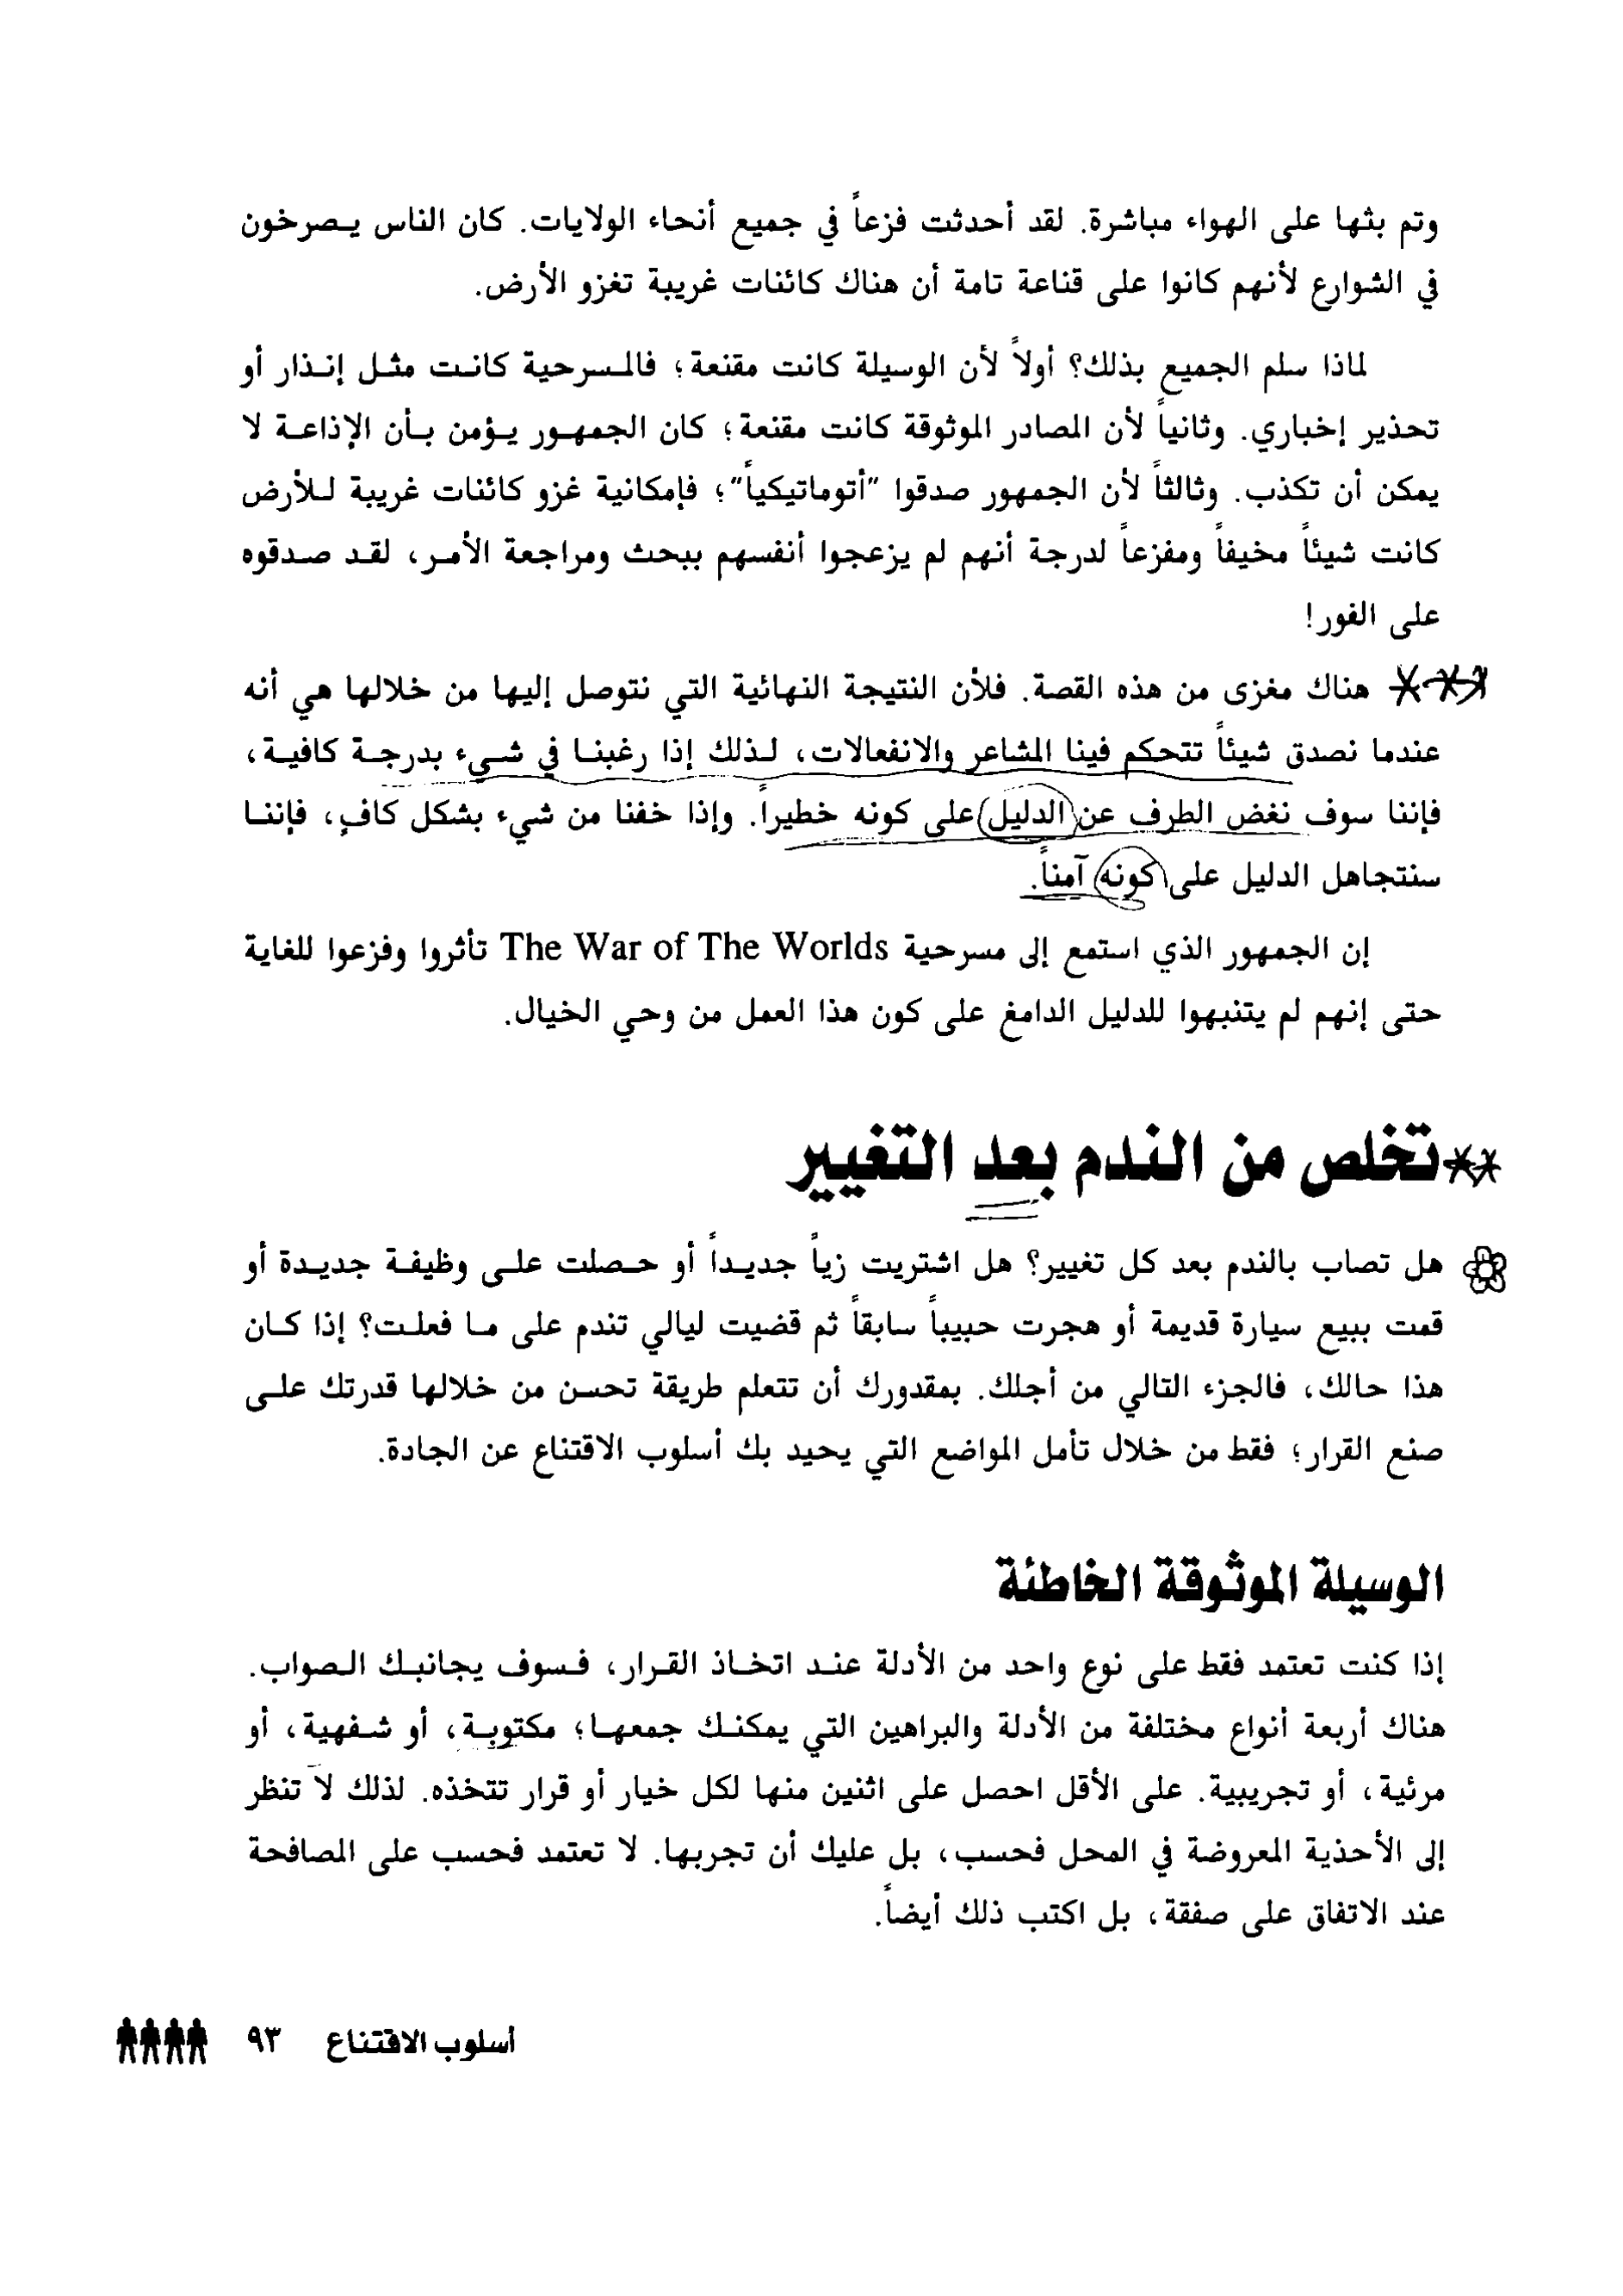 وتم بثها على الهواء مباشرة. لقد أحدثت فزعاً في جميع أنحاء الولايات. كان الناس يصرخون
في الشوارع لأنهم كانوا على قناعة تامة أن هناك كائنات غريبة تغزو الأرض.
لماذا سلم الجميع بذلك؟ أولاً لأن الوسيلة كانت مقنعة؛ فالمسرحية كانت مثل إنذار أو
تحذير إخباري. وثانياً لأن المصادر الموثوقة كانت مقنعة؛ كان الجمهور يؤمن بأن الإذاعة لا
يمكن أن تكذب. وثالثاً لأن الجمهور صدقوا "أتوماتيكياً"؛ فإمكانية غزو كائنات غريبة للأرض
كانت شيئاً مخيفاً ومفزعاً لدرجة أنهم لم يزعجوا أنفسهم ببحث ومراجعة الأمر، لقد صدقوه
على الفور!
هناك مغزى من هذه القصة. فلأن النتيجة النهائية التي نتوصل إليها من خلالها هي أنه
عندما نصدق شيئاً تتحكم فينا المشاعر والانفعالات، لذلك إذا رغبنا في شيء بدرجة كافية،
فإننا سوف نغض الطرف عن الدليل على كونه خطيراً. وإذا خفنا من شيء بشكل كافٍ، فإننا
سنتجاهل الدليل على كونه آمناً.
إن الجمهور الذي استمع إلى مسرحية The War of The Worlds تأثروا وفزعوا للغاية
حتى إنهم لم يتنبهوا للدليل الدامغ على كون هذا العمل من وحي الخيال.
تخلص من الندم بعد التغيير
هل تصاب بالندم بعد كل تغيير؟ هل اشتريت زياً جديداً أو حصلت على وظيفة جديدة أو
قمت ببيع سيارة قديمة أو هجرت حبيباً سابقاً ثم قضيت ليالي تندم على ما فعلت؟ إذا كان
هذا حالك، فالجزء التالي من أجلك. بمقدورك أن تتعلم طريقة تحسن من خلالها قدرتك على
صنع القرار؛ فقط من خلال تأمل المواضع التي يحيد بك أسلوب الاقتناع عن الجادة.
الوسيلة الموثوقة الخاطئة
إذا كنت تعتمد فقط على نوع واحد من الأدلة عند اتخاذ القرار، فسوف يجانبك الصواب.
هناك أربعة أنواع مختلفة من الأدلة والبراهين التي يمكنك جمعها؛ مكتوبة، أو شفهية، أو
مرئية، أو تجريبية. على الأقل احصل على اثنين منها لكل خيار أو قرار تتخذه. لذلك لا تنظر
إلى الأحذية المعروضة في المحل فحسب، بل عليك أن تجربها. لا تعتمد فحسب على المصافحة
عند الاتفاق على صفقة، بل اكتب ذلك أيضاً.
أسلوب الاقتناع ٩٣